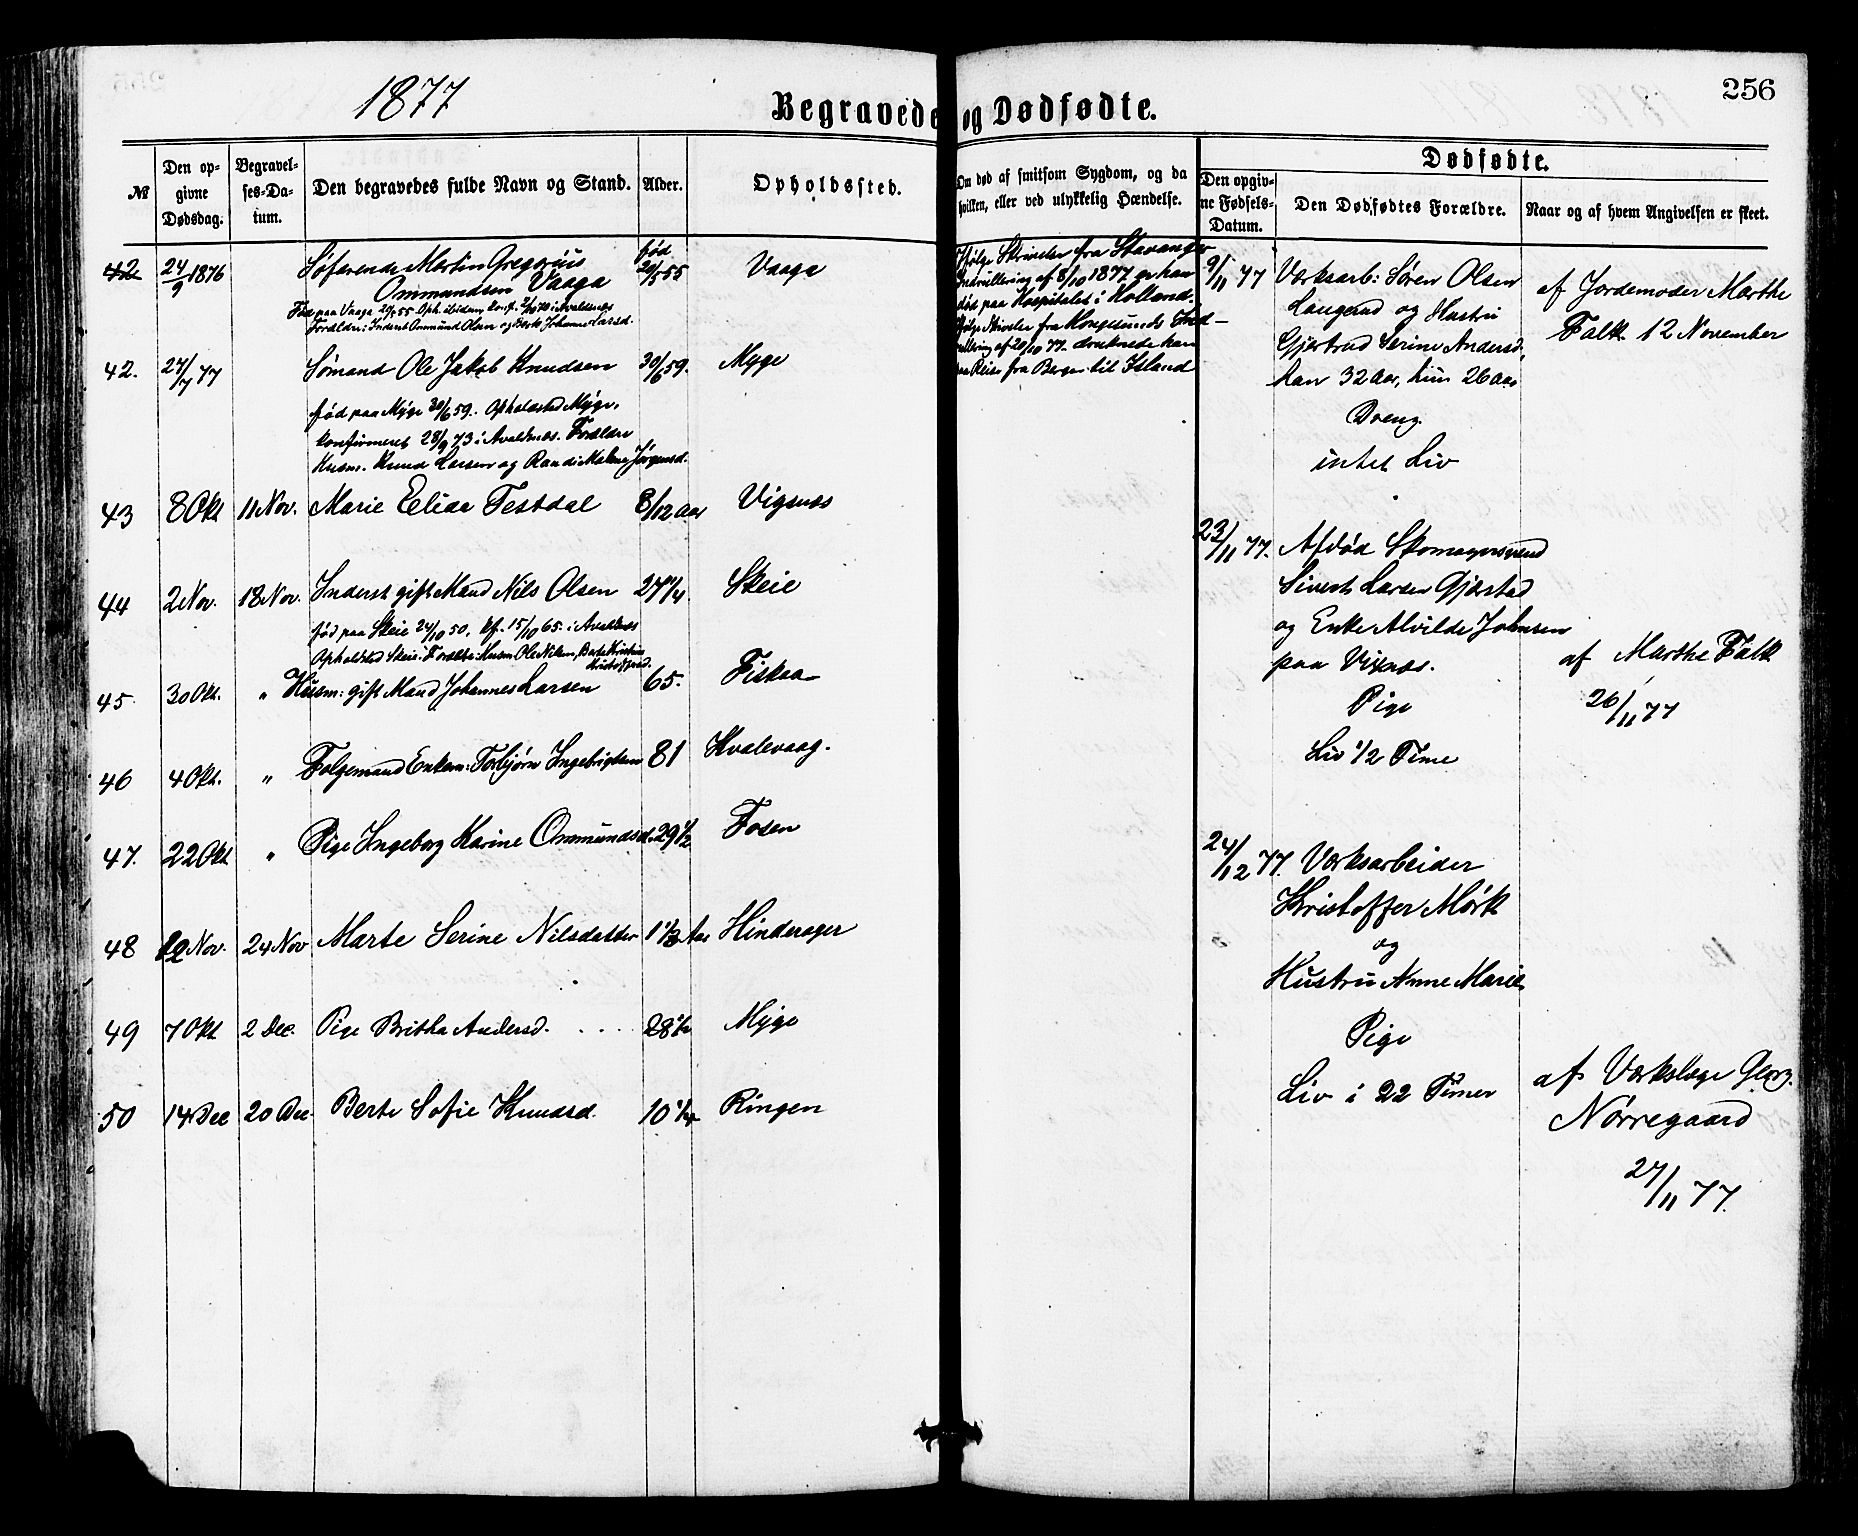 1877
Begravede og Dødfødte.
256
№
Den opgivne Dødsdag.
Begravelses-Datum.
Den begravedes fulde Navn og Stand.
Alder.
Opholdssted.
Om død af smitsom Sygdom, og da
hvilken, eller ved ulykkelig Hændelse.
Dødfødte.
Den opgivne Fødsels-Datum.
Den Dødfødtes Forældre.
Naar og af hvem Angivelsen er skeet.
42 24/9 1876 Søfarende Martin Gregorius født 29/5 55 Vaage
Ommundsen Vaaga
Født paa Vaage 29/5 55 Oph. ibidem, konf. i Avaldsnæs
Forældre: Inderst Ommund Olsen og Berte Johanne Larsd.
Ifølge Skrivelse fra Stavanger
Indrullering af 8/10 1877 er han
død paa Hospitalet i Holland.
42. 24/7 77 Sømand Ole Jakob Knudsen 30/6 59. Myge
født paa Myge 30/6 59. Opholdssted Myge,
konfirmeret 28/9 73 i Avaldsnæs. Forældre
Husm. Knud Larsen og Randi Malene Jørgensd.
Ifølge Skrivelse fra Kongesunds Ind-
rullering af 20/10 77 druknede han
paa Reise fra Bergen til Island
43 8 Okt 11 Nov. Marie Testdal 8/12 aar Vigsnæs
44 2 Nov. 18 Nov. Inderst gift Mand Nils Olsen 27 Skeie
født paa Skeie 24/10 50, kf. 15/10 65 i Avaldsnæs
Opholdsted Skeie. Forældre: Husm. Ole Nilsen, Berte Kristine
Kristoffersd.
45 30 Okt. " Husm: gift Mand Johannes Larsen 65. Fiskaa
46 4 Okt. " Folgemand Enkem: Torbjørn Ingebrigtsen 81 Kvalevaag.
47. 22 Okt " Pige Ingeborg Karine Ommundsd. 29 1/2 Fosen
48 Nov. 24 Nov Marte Serine Nilsdatter 1 1/3 Aar Hinderager
49 7 Okt 2 Dec. Pige Britha Andersd. 28 1/2 Myge
50 14 Dec 20 Dec. Berte Sofie Knudsd. 10 1/4 Ringen
9/11 77 Værksarb: Søren Olsen
Haugand og Hustru
Gjertrud Serine Andersd,
han 32 Aar, hun 26 Aar
Dreng.
intet Liv
af Jordemoder Marthe
Falk 12 November
23/11 77. Afdød Skomagersvend
Sivert Larsen Gjerstad
og Enke Alvilde Johnsen
paa Vixnæs.
Pige
Liv 1/2 Time
af Marthe Falk
26/11 77
24/12 77. Værksarbeider
Kristoffer Mørk
og
Hustru Anne Marie
Pige
Liv i 22 Timer
af Værkslæge Georg
Nørregaard
27/11 77.